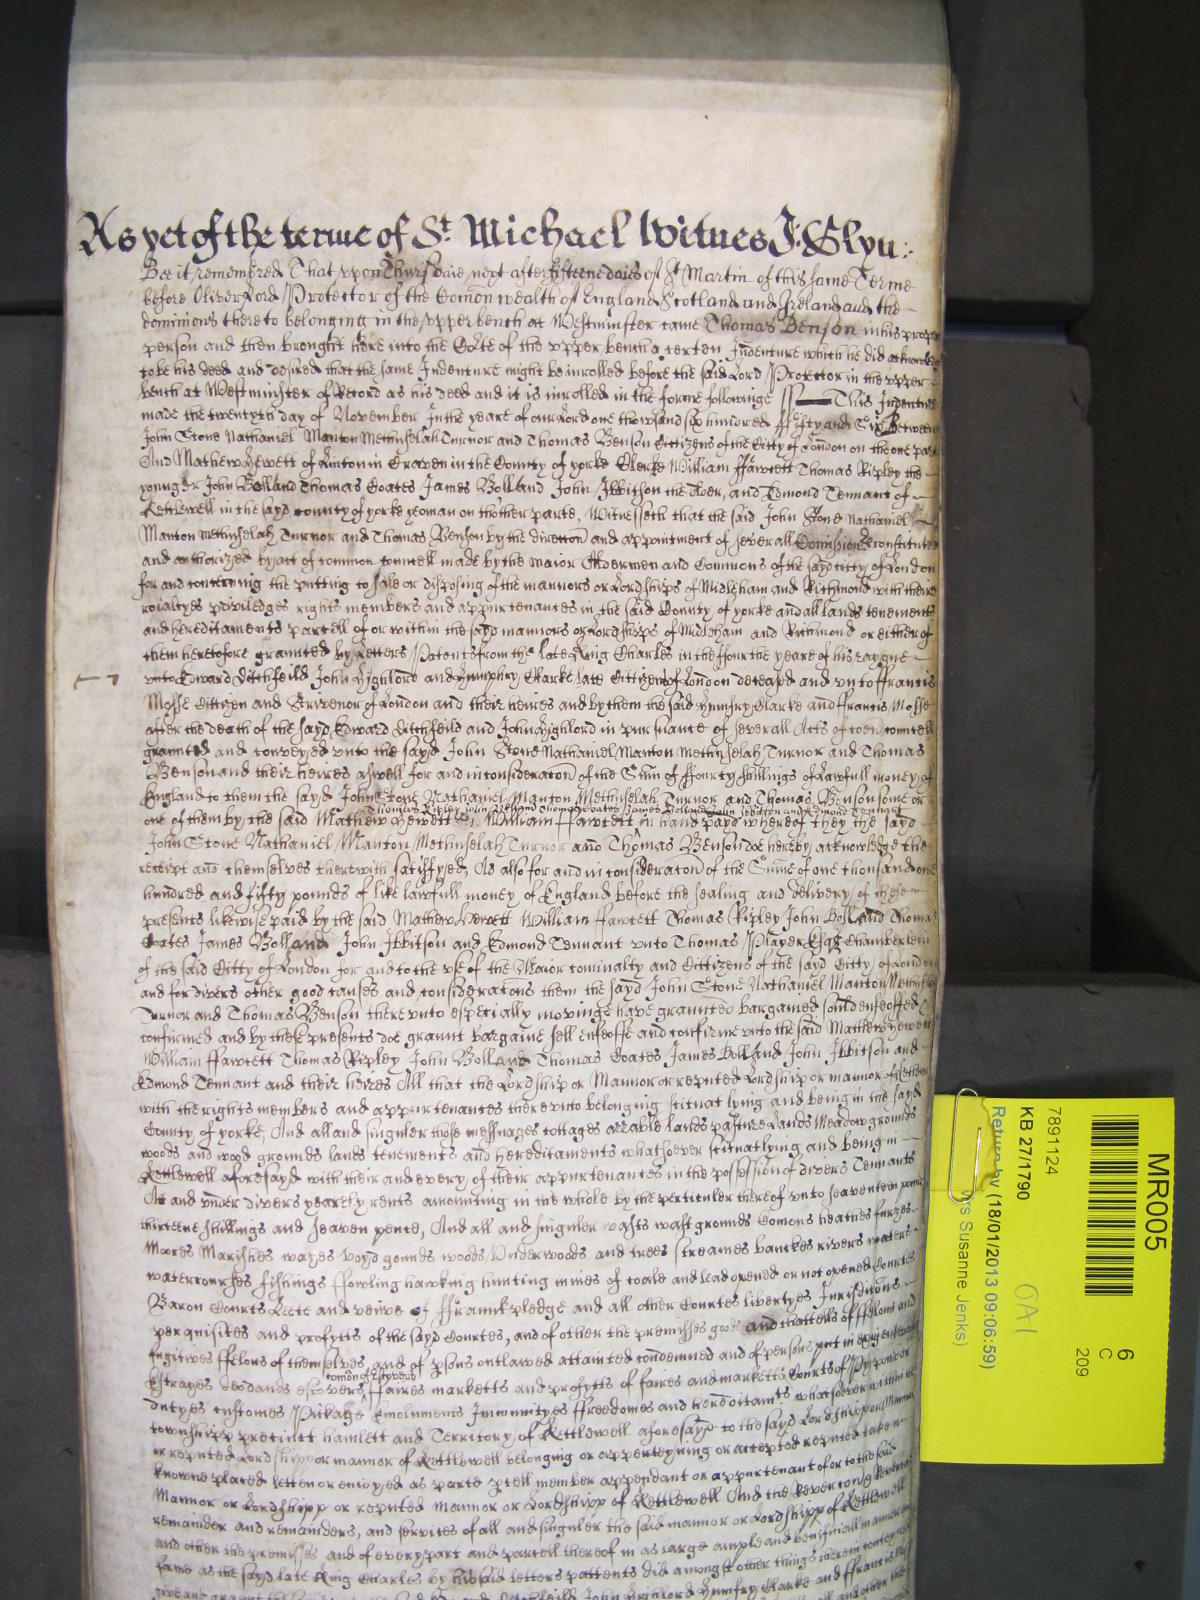 As yet of the terme of St. Michael Witnes J: Glyn:
Bee it remembred That upon Thursdaie next after fifteene daies of St Martin of this same Terme
before Oliver Lord Protector of the Comon wealth of England Scotland and Ireland and the
dominions thereto belonging in the upper bench at Westminster came Thomas Benson in his proper
person and then brought here into the Co'te of the upper bench a certen Indenture which he did acknowledg
to be his deed and desired that the same Indenture might be inrolled before the said Lord Protector in the upper
bench at Westminster of Record as his deed and it is inrolled in the forme followinge ss This Indenture
made the twentyth day of November In the yeare of our Lord one thousand six hundred ffifty and Six Betweene
John Stone Nathaniel Manton Methuselah Turnor and Thomas Benson Cittizens of the Citty of London on the one part
And Mathew Hewett of Linton in Craven in the County of yorke Clerke William ffawcett Thomas Ripley the
younger John Bolland Thomas Coates James Bolland John Ibbitson the elder, and Edmond Tennant of
Kettlewell in the sayd county of yorke yeoman on thother parte, Witnesseth that the said John Stone Nathaniel
Manton Methuselah Turnor and Thomas Benson by the direction and appointment of severall Comissions constituted
and authorized by act of common councell made by the maior Aldermen and Commons of the sayd citty of London
for and concerning the putting to sale or disposing of the mannors or Lordshipps of Midleham and Richmond with their
roialtyes priviledges rights members and appurtenances in the said County of yorke and all lands tenements
and hereditaments parcell of or within the sayd mannors or Lordshipps of Midleham and Richmond or either of
them heretofore graunted by Letters Patents from the late King Charles in the ffourth yeare of his raigne
unto Edward Ditchfeild John Highlord and Humphry Clarke late Cittizens of London deceased and unto ffrancis
Mosse Cittizen and Scrivenor of London and their heires and by them the said Humfry Clarke and ffrancis Mosse
after the death of the sayd Edward Ditchfeild and John Highlord in pursuance of severall Acts of co'en councell
graunted and conveyed unto the sayd John Stone Nathaniel Manton Methuselah Turnor and Thomas
Benson and their heires aswell for and in consideracon of the Sum of ffourty shillings of Lawfull money of
England to them the sayd John Stone Nathaniel Manton Methuselah Turnor and Thomas Benson some or
Thomas Ripley John Bolland Thomas Coates James Bolland John Ibbitson and Edmond Tennant
one of them by the said Mathew Hewett William ffawcett in hand payd whereof they the sayd
John Stone Nathaniel Manton Methuselah Turnor and Thomas Benson doe hereby acknowledge the
receipt and themselves therewith satisfyed, As also for and in consideracon of the Sume of one thousand one
hundred and fifty pounds of like lawfull money of England before the sealing and delivery of these
presents likewise paid by the said Mathew Hewett William ffawcett Thomas Ripley John Bolland Thomas
Coates James Bolland John Ibbitson and Edmond Tennant unto Thomas Player Esqr Chamberlein
of the said Citty of London for and to the use of the Maior cominalty and Cittizens of the sayd Citty of London
and for divers other good causes and consideracons them the sayd John Stone Nathaniel Manton Methuselah
Turnor and Thomas Benson thereunto especially movinge have graunted bargained sould enfeoffed
confirmed and by these presents doe graunt bargaine sell enfeoffe and confirme unto the said Mathew Hewett
William ffawcett Thomas Ripley John Bolland Thomas Coates James Bolland John Ibbitson and
Edmond Tennant and their heires All that the Lordship or Mannor or reputed Lordship or mannor of Kettlewell
with the rights members and appurtenances thereunto belonging scituat lying and being in the sayd
County of yorke, And all and singuler those messuages cottages arrable lands pasture Lands Meadow grounds
woods and wood grounds lands tenements and hereditaments whatsoever scituat lying and being in
Kettlewell aforesayd with their and every of their appurtenances in the possession of divers Tennants
At and under divers yearely rents amounting in the whole by the perticuler thereof unto seaventeen pounds
thirteene shillings and seaven pence, And all and singuler wasts wast grounds Comons heathes furzes
Moores Marishes wayes voyd grounds woods Underwoods and trees streames banckes rivers waters
watercourses fishings ffowling hawking hunting mines of coale and lead opened or not opened Courtes
Baron Courts Leete and veiwe of ffranckpledge and all other Courtes libertyes Jurisdicions
perquisites and profytts of the sayd Courtes, and of other the premisses goods and chattells of ffelons and
fugitives ffelons of themselves and of p'sons outlawed attainted condemned and of persons put in exigent
comon of Estovers
Estrayes deodands estovers, ffaires marketts and profytts of faires and marketts Courts of Pypowder
dutyes customes Pickage Emoluments Immunityes ffreedomes and hereditaments whatsoever within the
townshipp precinct hamlett and Territory of Kettlewell aforesayd to the sayd Lordshipp or Mannor
or reputed Lordshipp or mannor of Kettlewell belonging or apperteyning or accepted reputed taken
knowne placed letten or enioyed as parte p'cell member appendant or appurtenant of or to the said
Mannor or Lordshipp or reputed Mannor or Lordshipp of Kettlewell And the Revercon & Revercons
remainder and remainders, and services of all and singuler the said mannor or Lordshipp of Kettlewell
and other the premisses and of every part and parcell thereof in as large ample and benificiall manner
same as the sayd late King Charles by his said letters pattents did amongst other things therein conteyned
give and graunt John Highlord Humfry Clarke and ffrancis Mosse
MR005
6
C
209
7891124
KB 27/1790
OA1
Return by (18/01/2013 09:06:59)
Susanne Jenks)